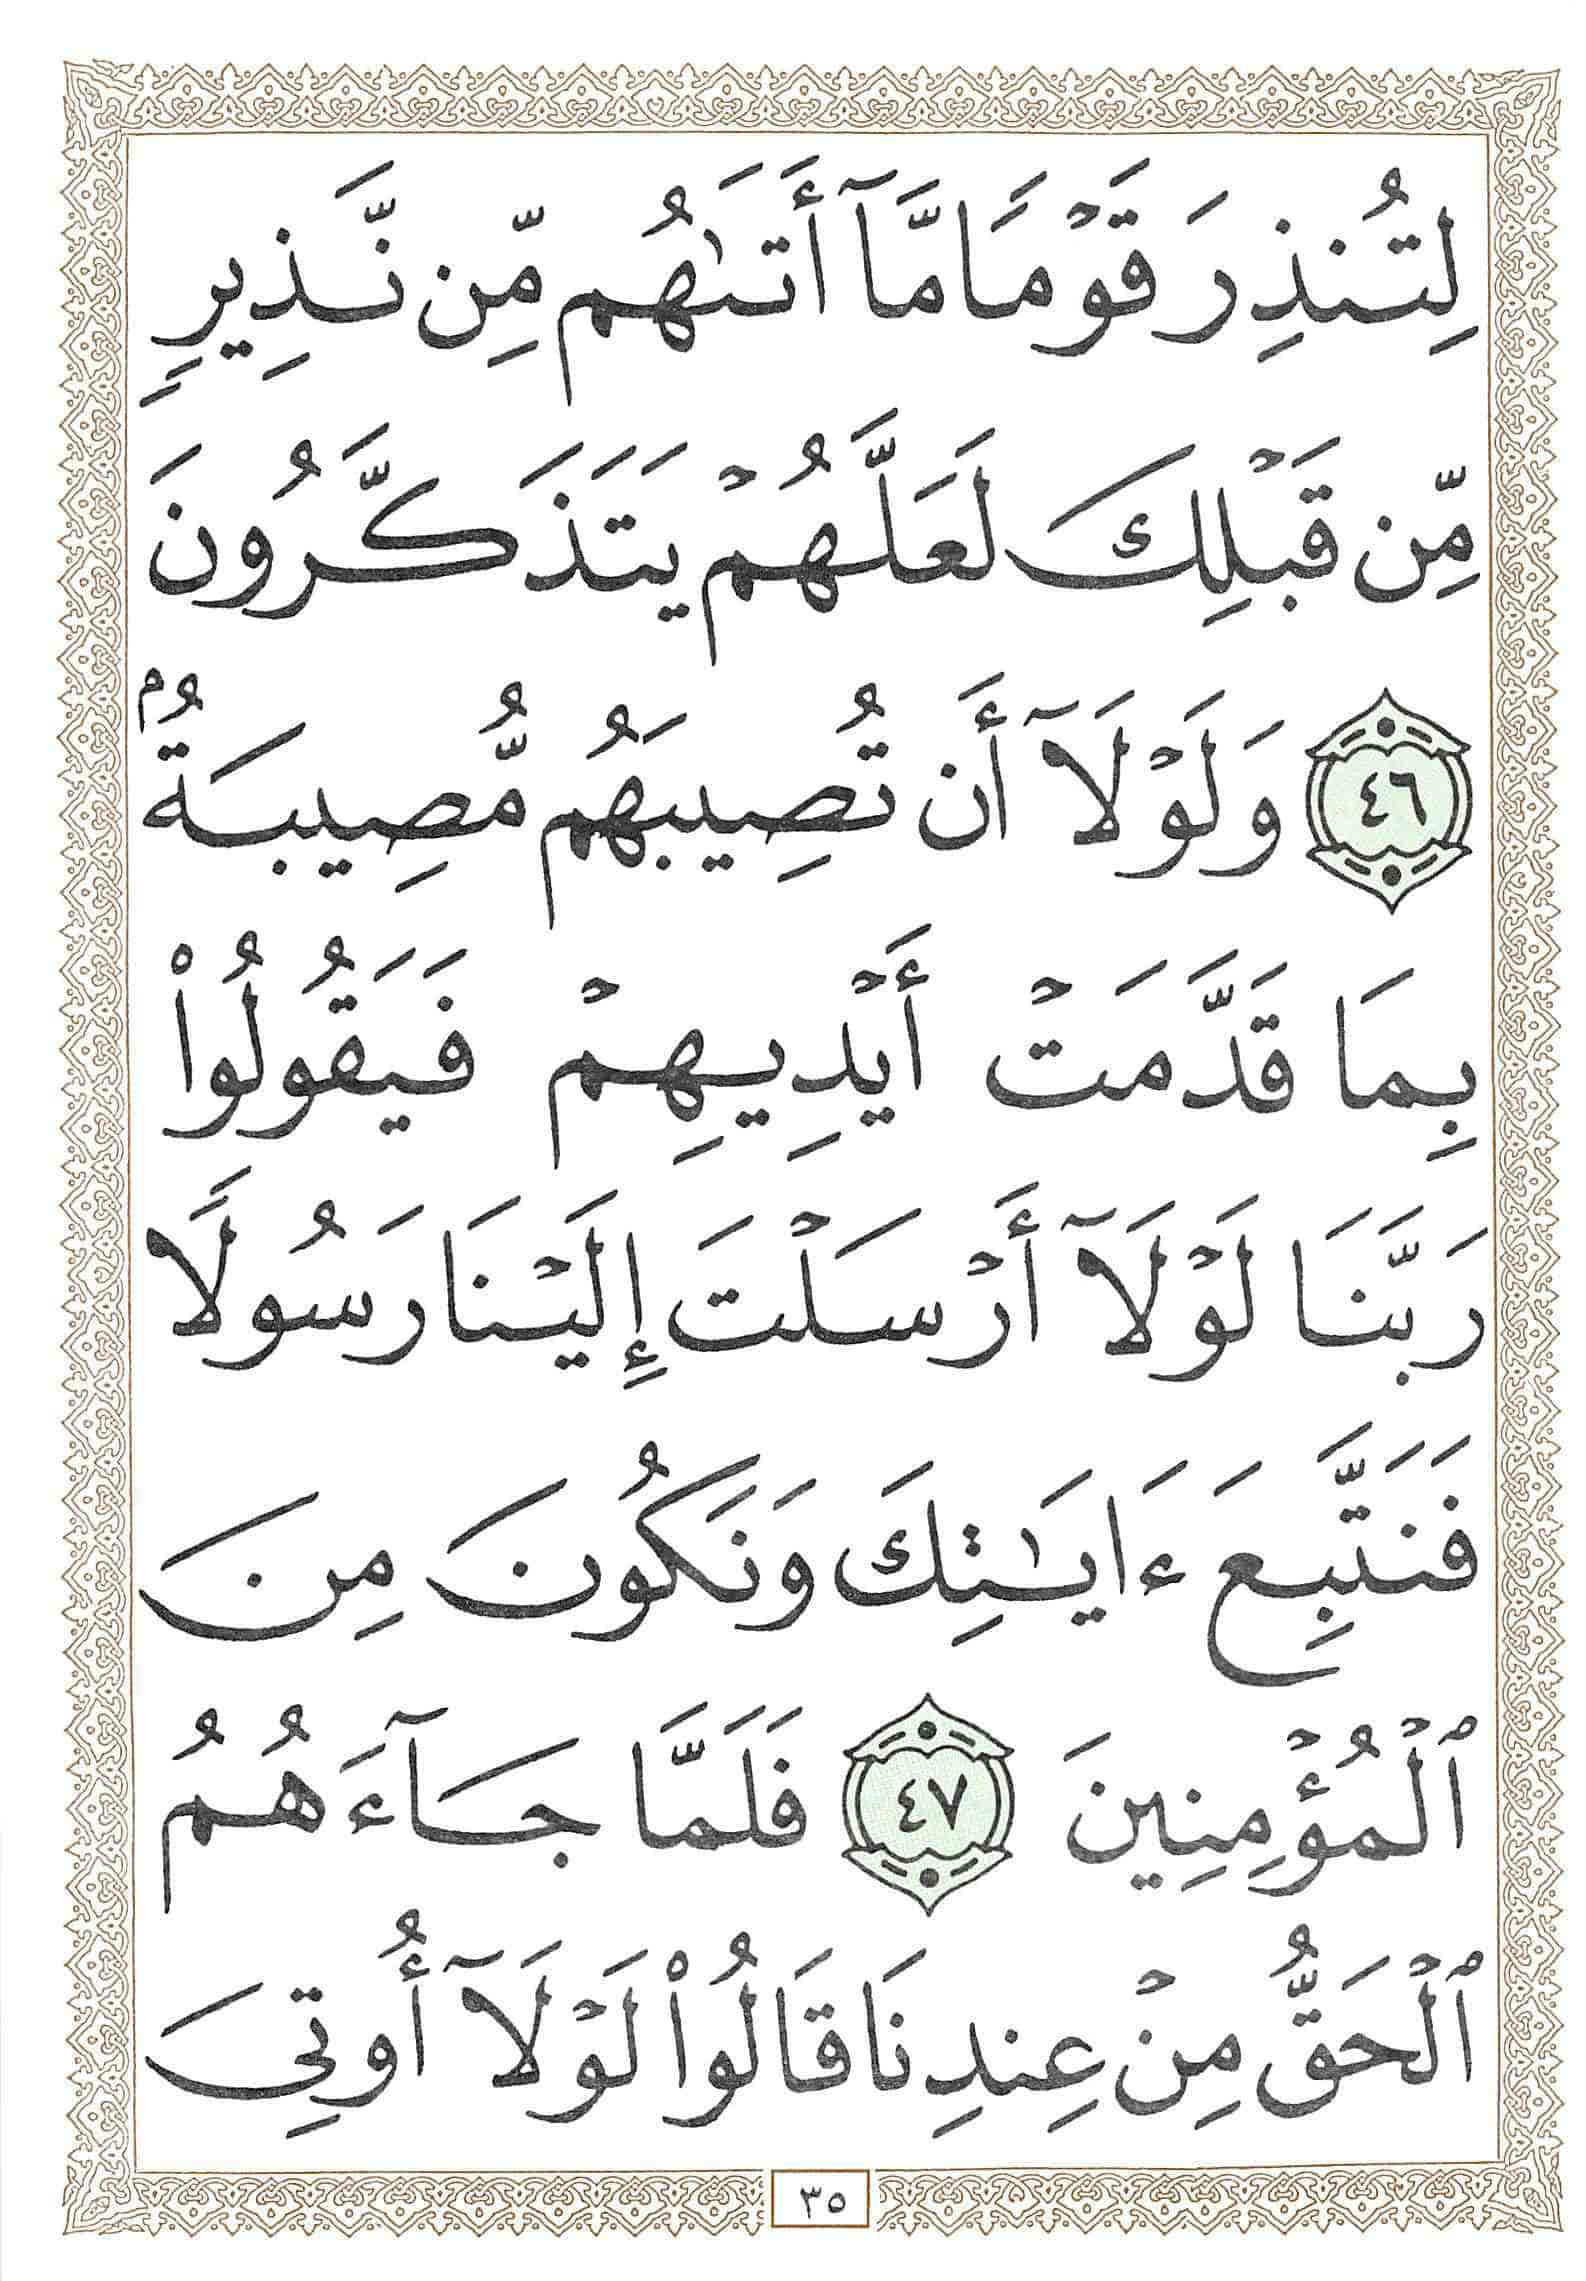 لِتُنذِرَ قَوْمًا مَّآ أَتَىٰهُم مِّن نَّذِيرٍ
مِّن قَبْلِكَ لَعَلَّهُمْ يَتَذَكَّرُونَ
٤٦ وَلَوْلَآ أَن تُصِيبَهُم مُّصِيبَةٌۢ
بِمَا قَدَّمَتْ أَيْدِيهِمْ فَيَقُولُوا۟
رَبَّنَا لَوْلَآ أَرْسَلْتَ إِلَيْنَا رَسُولًا
فَنَتَّبِعَ ءَايَـٰتِكَ وَنَكُونَ مِنَ
ٱلْمُؤْمِنِينَ ٤٧ فَلَمَّا جَآءَهُمُ
ٱلْحَقُّ مِنْ عِندِنَا قَالُوا۟ لَوْلَآ أُوتِىَ
٣٥